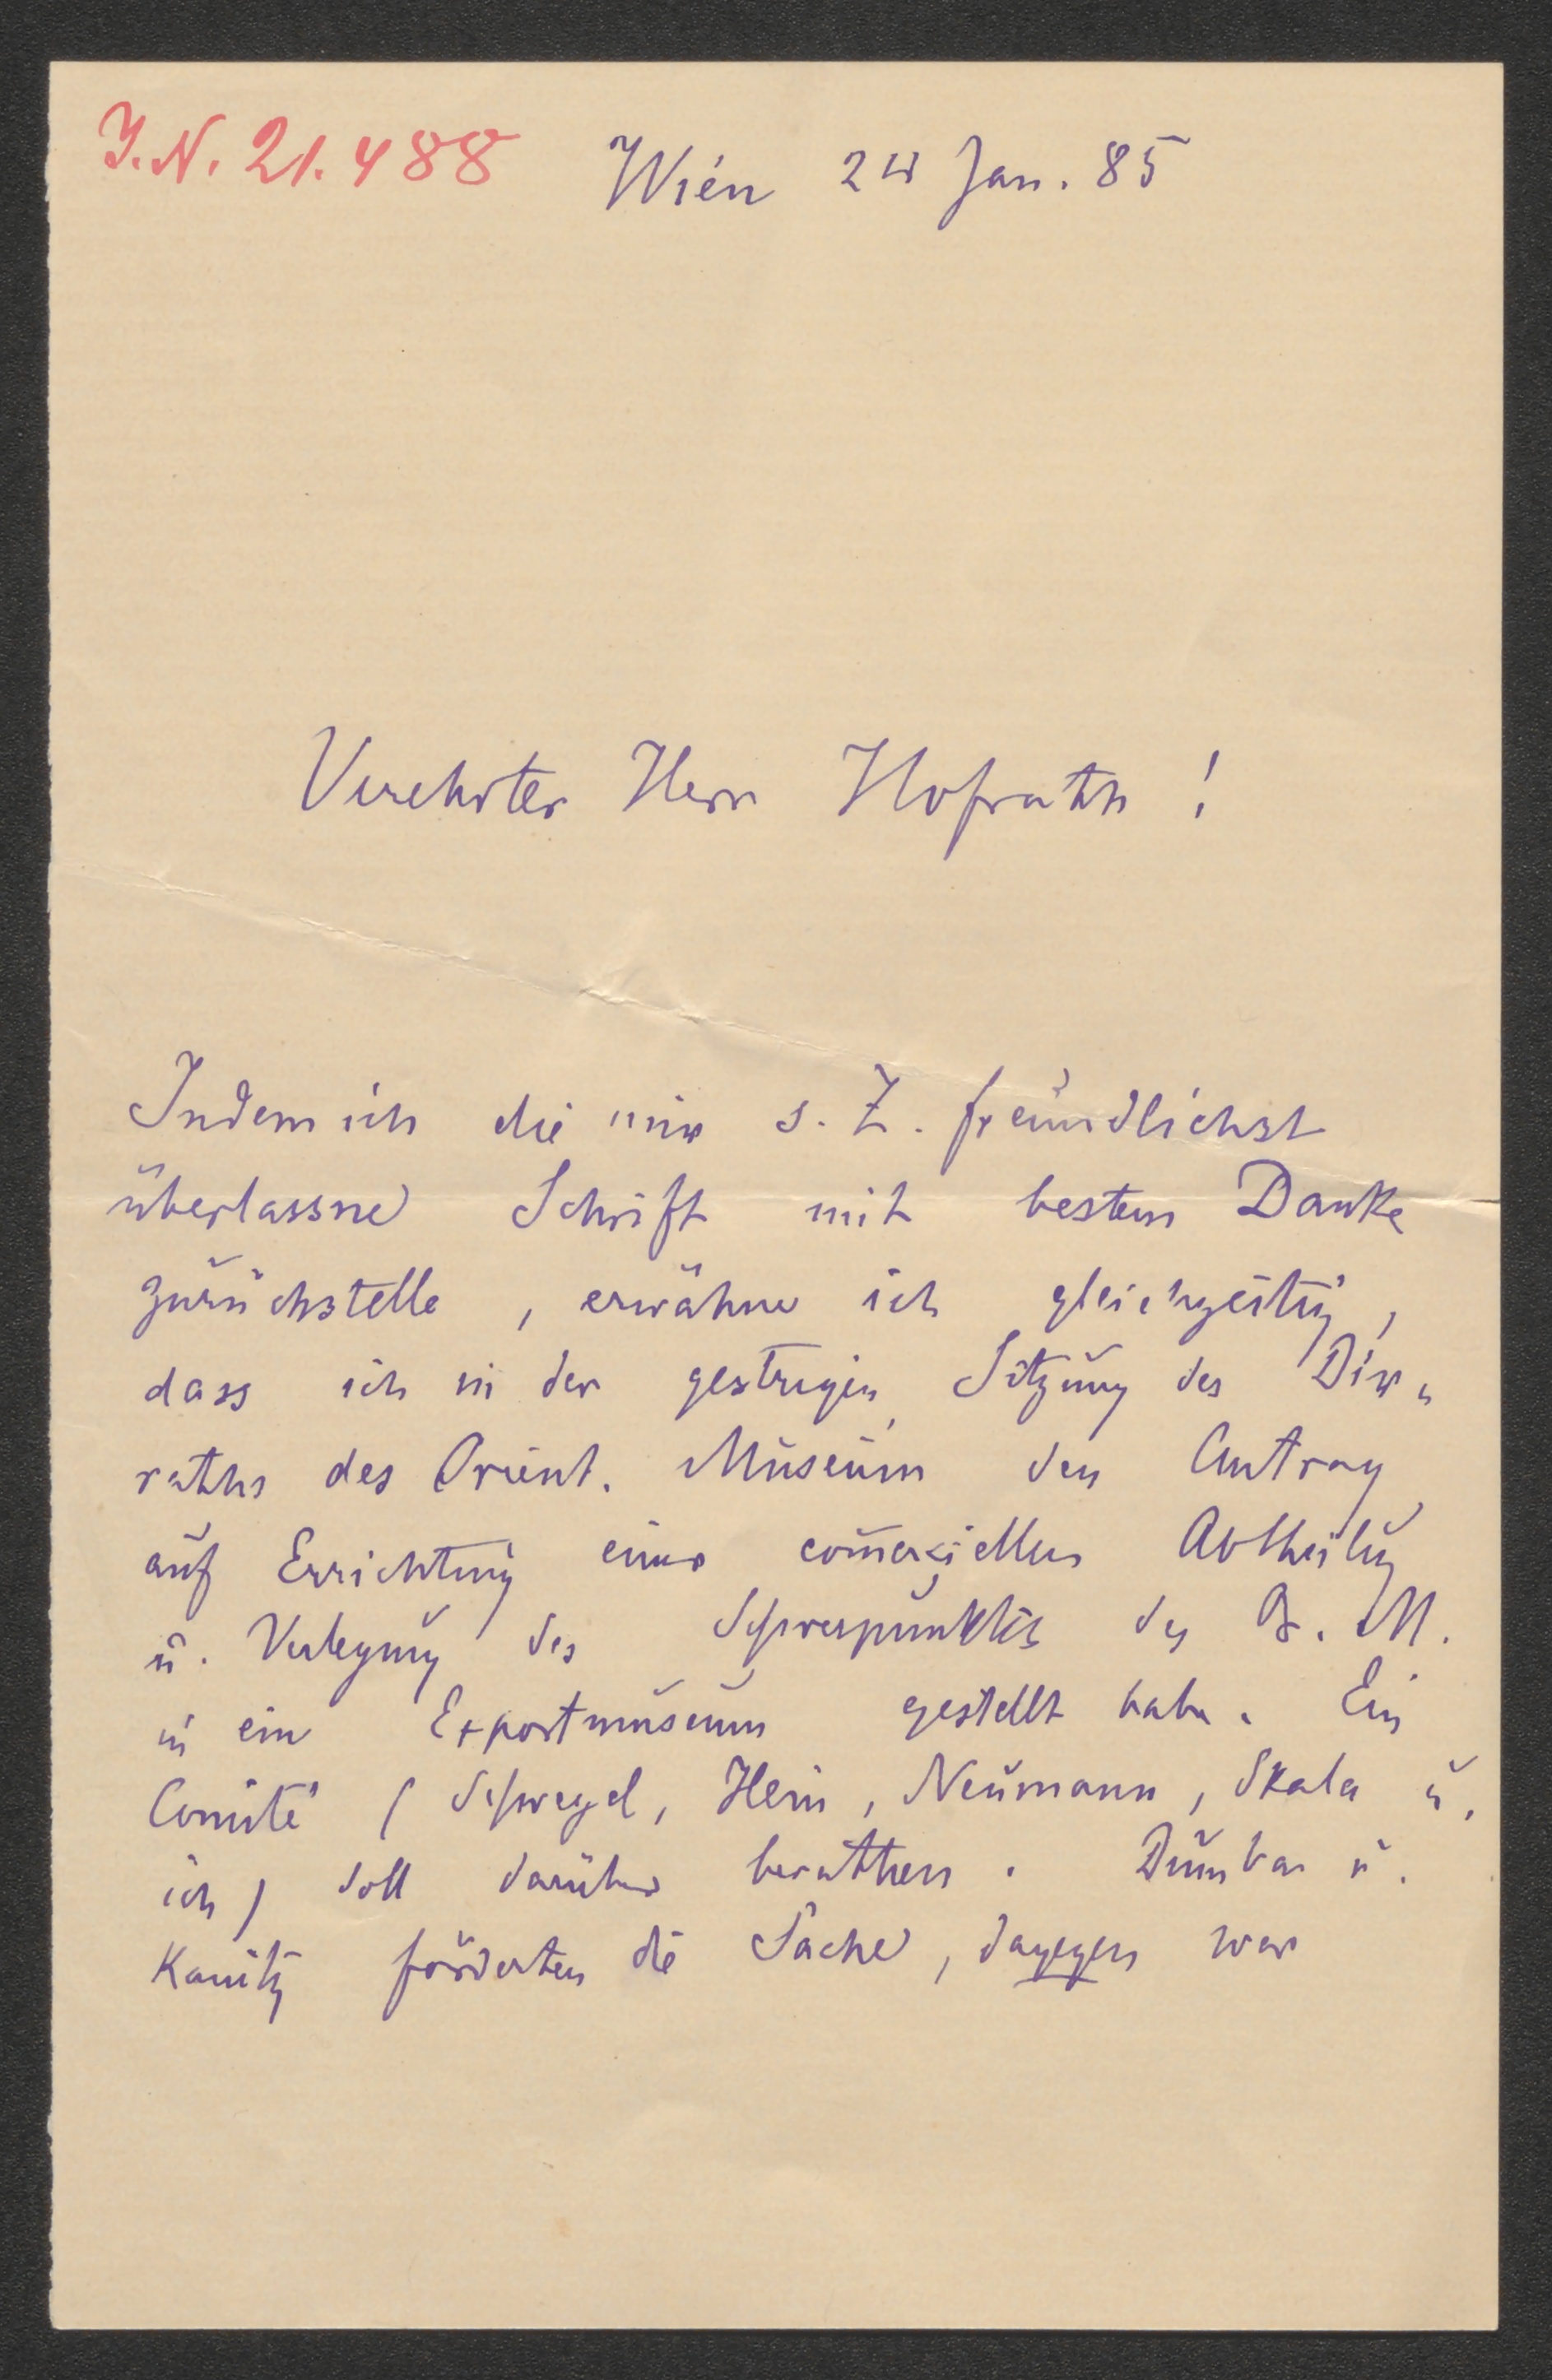 I.N. 21.488
Wien 24 Jan. 85
Verehrter Herr Hofrath !
Indem ich die mir s. Z. freundlichst
überlassne Schrift mit bestem Danke
zurückstelle , erwähne ich gleichzeitig ,
dass ich in der gestrigen Sitzung des Dir.
raths des Orient. Museum den Antrag
auf Errichtung einer com̅erziellen Abtheilug
u. Verlegung des Schwerpunktes des Or. M.
in ein Exportmuseum gestellt habe . Ein
Comité ( Schwegel , Hein , Neumann , Skala u.
ich ) soll darüber berathen . Dumba u.
Kanitz förderten die Sache , dagegen war